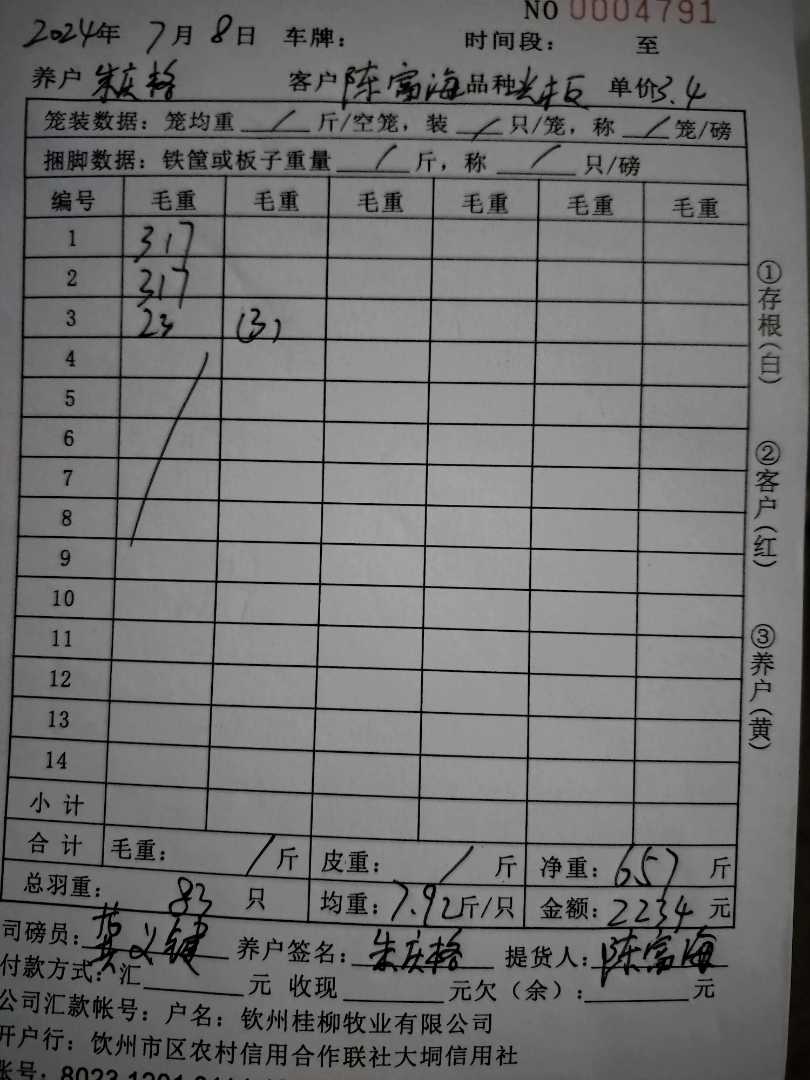 NO 0004791
2024年 7月 8日 车牌: 时间段: 至
养户 朱庆格 客户 陈富海 品种 光板 单价 3.4
笼装数据: 笼均重 / 斤/空笼, 装 / 只/笼, 称 / 笼/磅
捆脚数据: 铁筐或板子重量 / 斤, 称 / 只/磅
编号 毛重 毛重 毛重 毛重 毛重 毛重
1 317
2 317
3 23 (3)
4
5
6
7
8
9
10
11
12
13
14
小计
合计 毛重: / 斤 皮重: / 斤 净重: 657 斤
总羽重: 83 只 均重: 7.92 斤/只 金额: 2234 元
司磅员: 黄义键 养户签名: 朱庆格 提货人: 陈富海
付款方式: 汇 元 收现 元欠(余): 元
公司汇款帐号: 户名: 钦州桂柳牧业有限公司
开户行: 钦州市区农村信用合作联社大垌信用社
帐号: 8023 1201
①存根(白)
②客户(红)
③养户(黄)